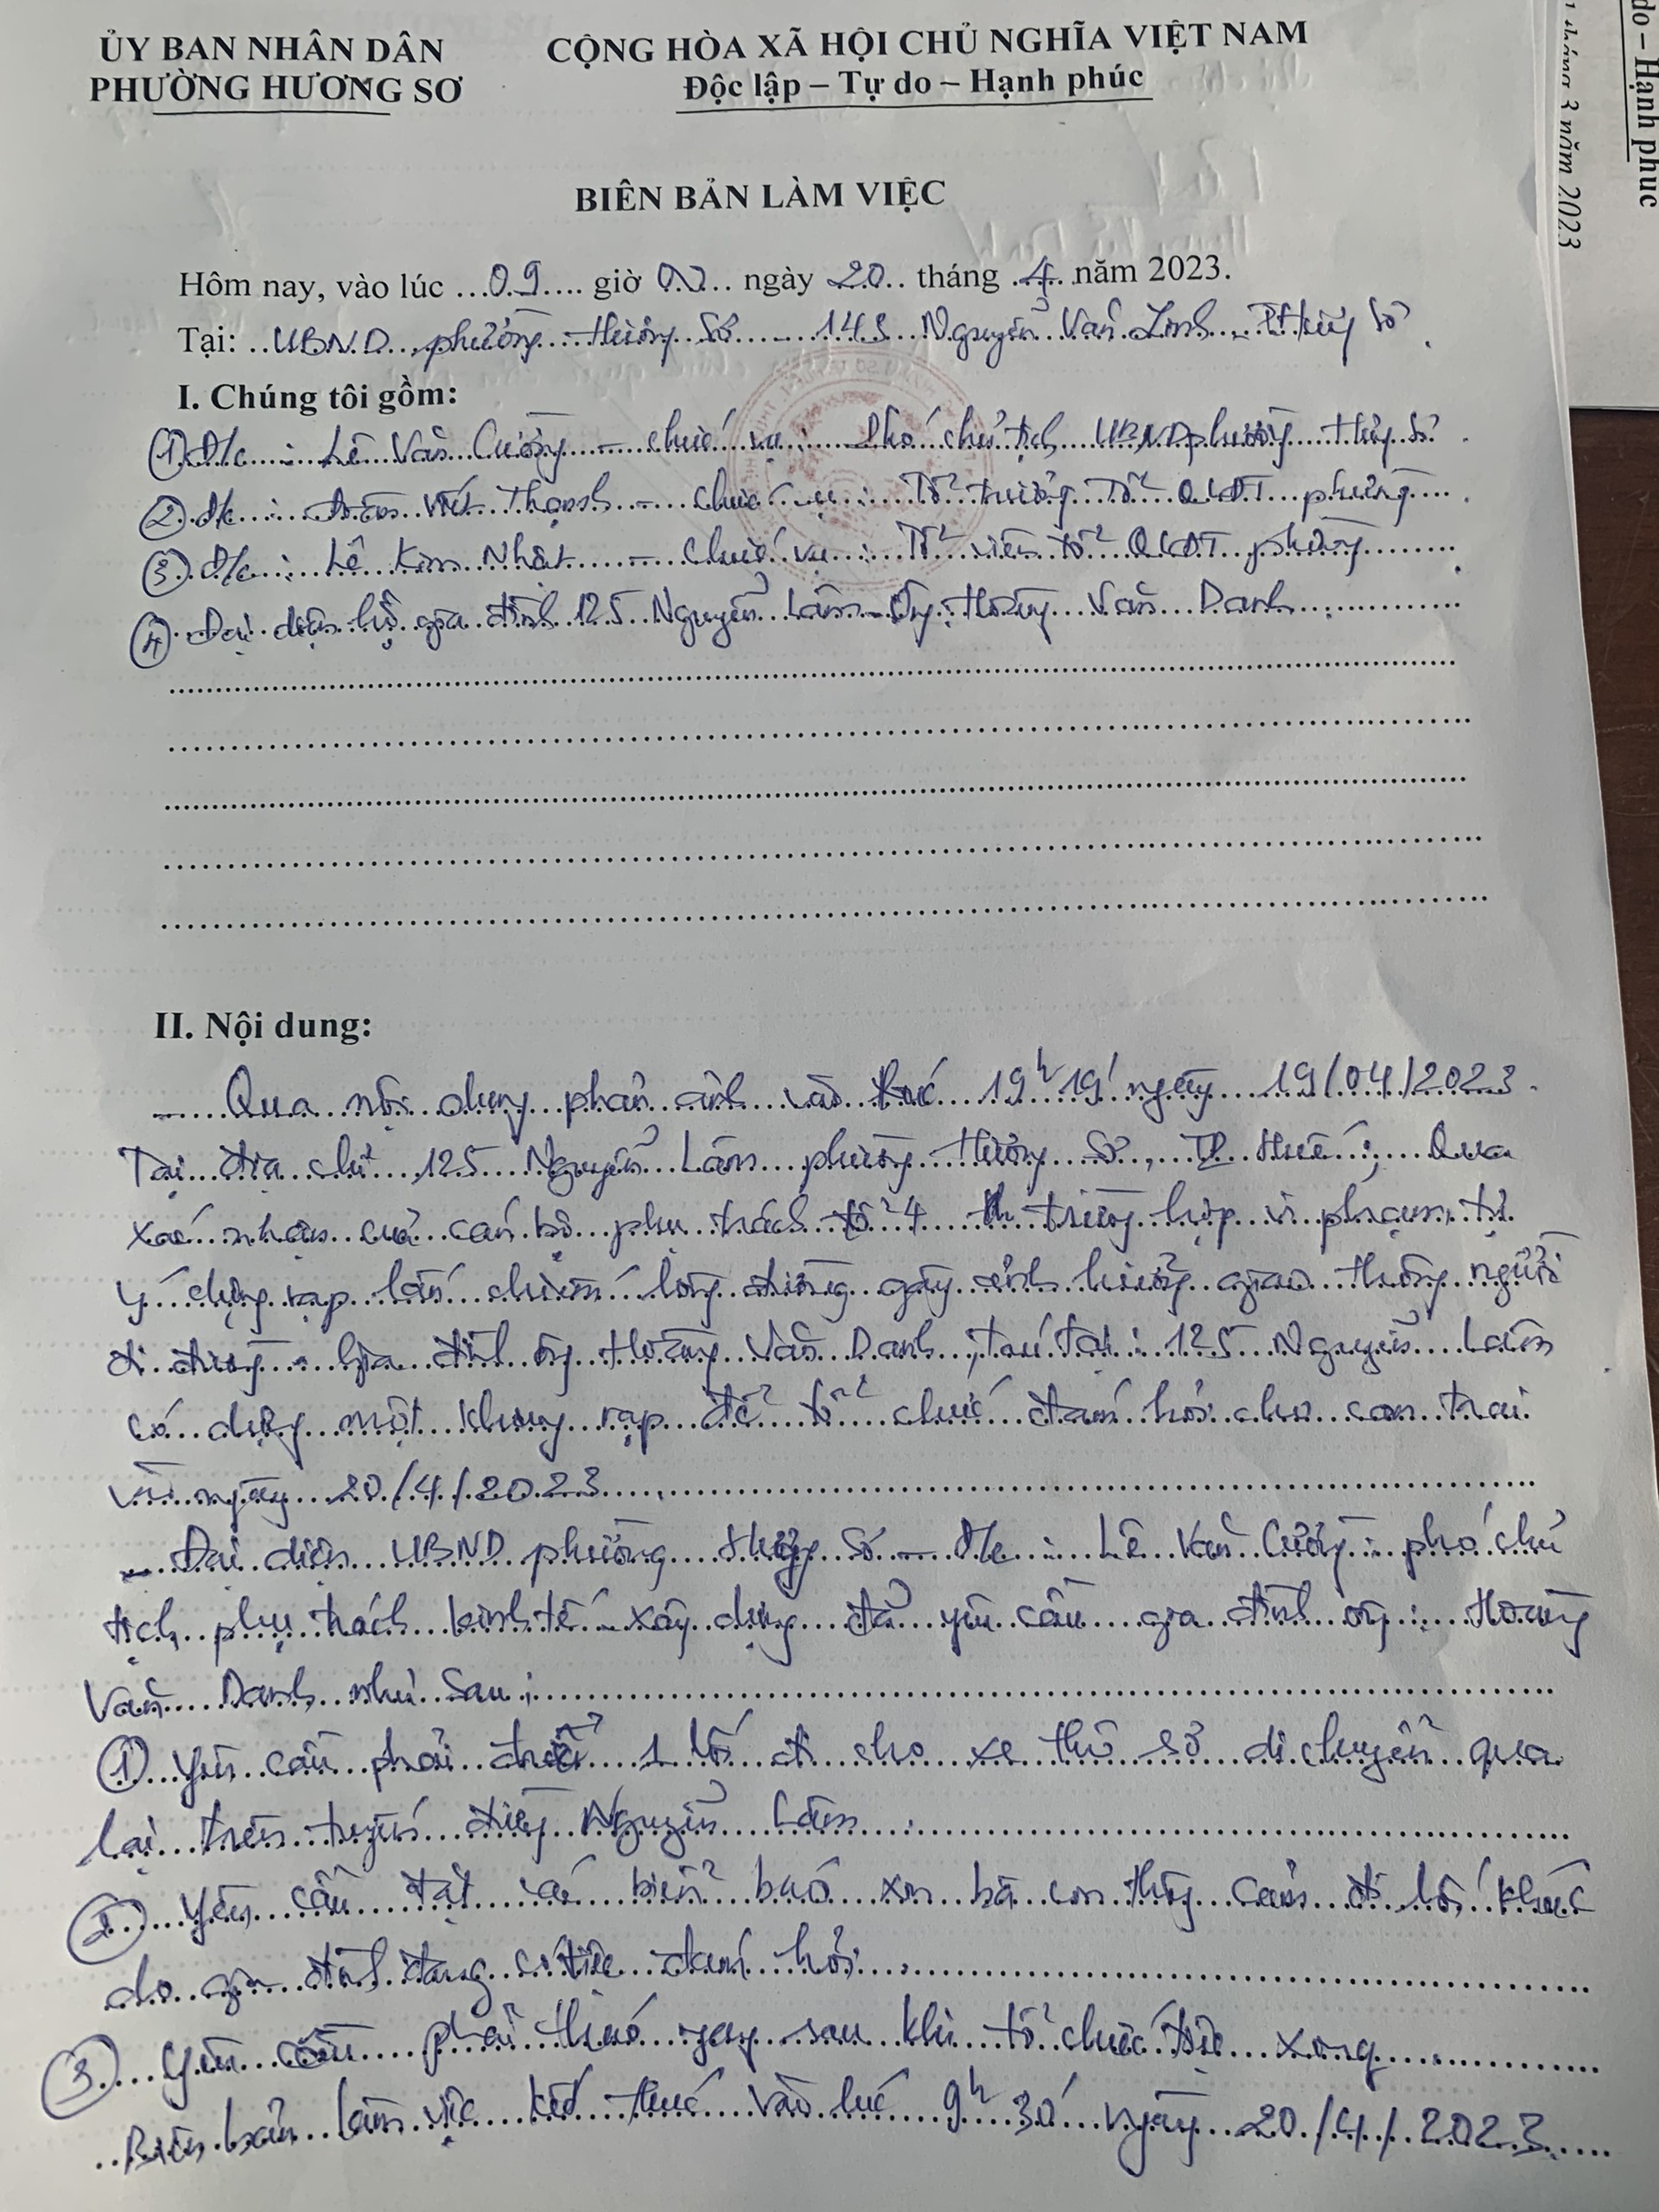 ỦY BAN NHÂN DÂN
PHƯỜNG HƯƠNG SƠ
CỘNG HÒA XÃ HỘI CHỦ NGHĨA VIỆT NAM
Độc lập – Tự do – Hạnh phúc
BIÊN BẢN LÀM VIỆC
Hôm nay, vào lúc 09 giờ 00 ngày 20 tháng 4 năm 2023.
Tại: UBND phường Hương Sơ - 143 Nguyễn Văn Linh - P Hương Sơ.
I. Chúng tôi gồm:
① Đ/c: Lê Văn Cường - chức vụ: Phó chủ tịch UBND phường Hương Sơ.
② Đ/c: Viết Thạnh - chức vụ: Tổ trưởng Tổ QLĐT phường.
③ Đ/c: Lê Kim Nhật - chức vụ: Tổ viên tổ QLĐT phường.
④ Đại diện hộ gia đình 125 Nguyễn Lâm - Ông: Hoàng Văn Danh.
II. Nội dung:
- Qua nội dung phản ánh vào lúc 19h19' ngày 19/04/2023.
Tại địa chỉ 125 Nguyễn Lâm phường Hương Sơ, TP Huế; Qua
xác nhận của cán bộ phụ trách tổ 4 trường hợp vi phạm, tự
ý dựng rạp lấn chiếm lòng đường gây ảnh hưởng giao thông người
đi đường. gia đình ông Hoàng Văn Danh, trú tại: 125 Nguyễn Lâm
có dựng một khung rạp để tổ chức đám hỏi cho con trai
vào ngày 20/4/2023.
- Đại diện UBND phường Hương Sơ - Đ/c: Lê Văn Cường: phó chủ
tịch phụ trách kinh tế - xây dựng đã yêu cầu gia đình ông: Hoàng
Văn Danh như sau:
① Yêu cầu phải 1 lối đi cho xe thô sơ di chuyển qua
lại trên tuyến đường Nguyễn Lâm.
② Yêu cầu đặt các biển báo xin bà con thông cảm đi lối khác
do gia đình đang có tiệc đám hỏi.
③ Yêu cầu phải tháo ngay sau khi tổ chức tiệc xong.
Biên bản làm việc kết thúc vào lúc 9h30' ngày 20/4/2023.
do – Hạnh phúc
tháng 3 năm 2023